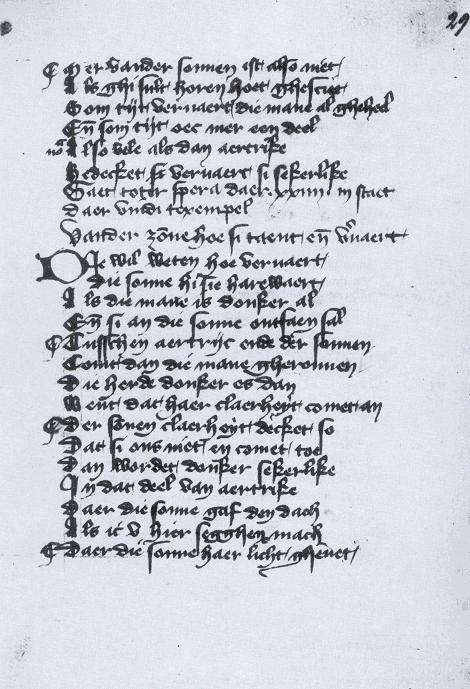 29
Mer vander sonnen ist also niet
Als ghi sult horen hoet ghesciet
Som tijt vervaert die mane al gheheel
En som tijt oec mer een deel
Also vele als dan aertrike
Bedecket si vervaert si sekerlike
Gaet toter spera daer xxiiii in staet
daer vindi texempel
Vander zonne hoe si taent en vvaert
Die wil weten hoe vervaert
die sonne hi sie harewaert
Als die mane is donker al
En si an die sonne ontfaen sal
Tusschen aertrijc ende der sonnen
Comt dan die mane gheronnen
Die herde donker es dan
Went dat haer claerheyt comet an
Der sonnen claerheyt decket so
Dat si ons niet en comet toe
Dan wordet donker sekerlike
In dat deel van aertrike
Daer die sonne gaf den dach
Als ic v hier segghen mach
Daer die sonne haer licht ghevet